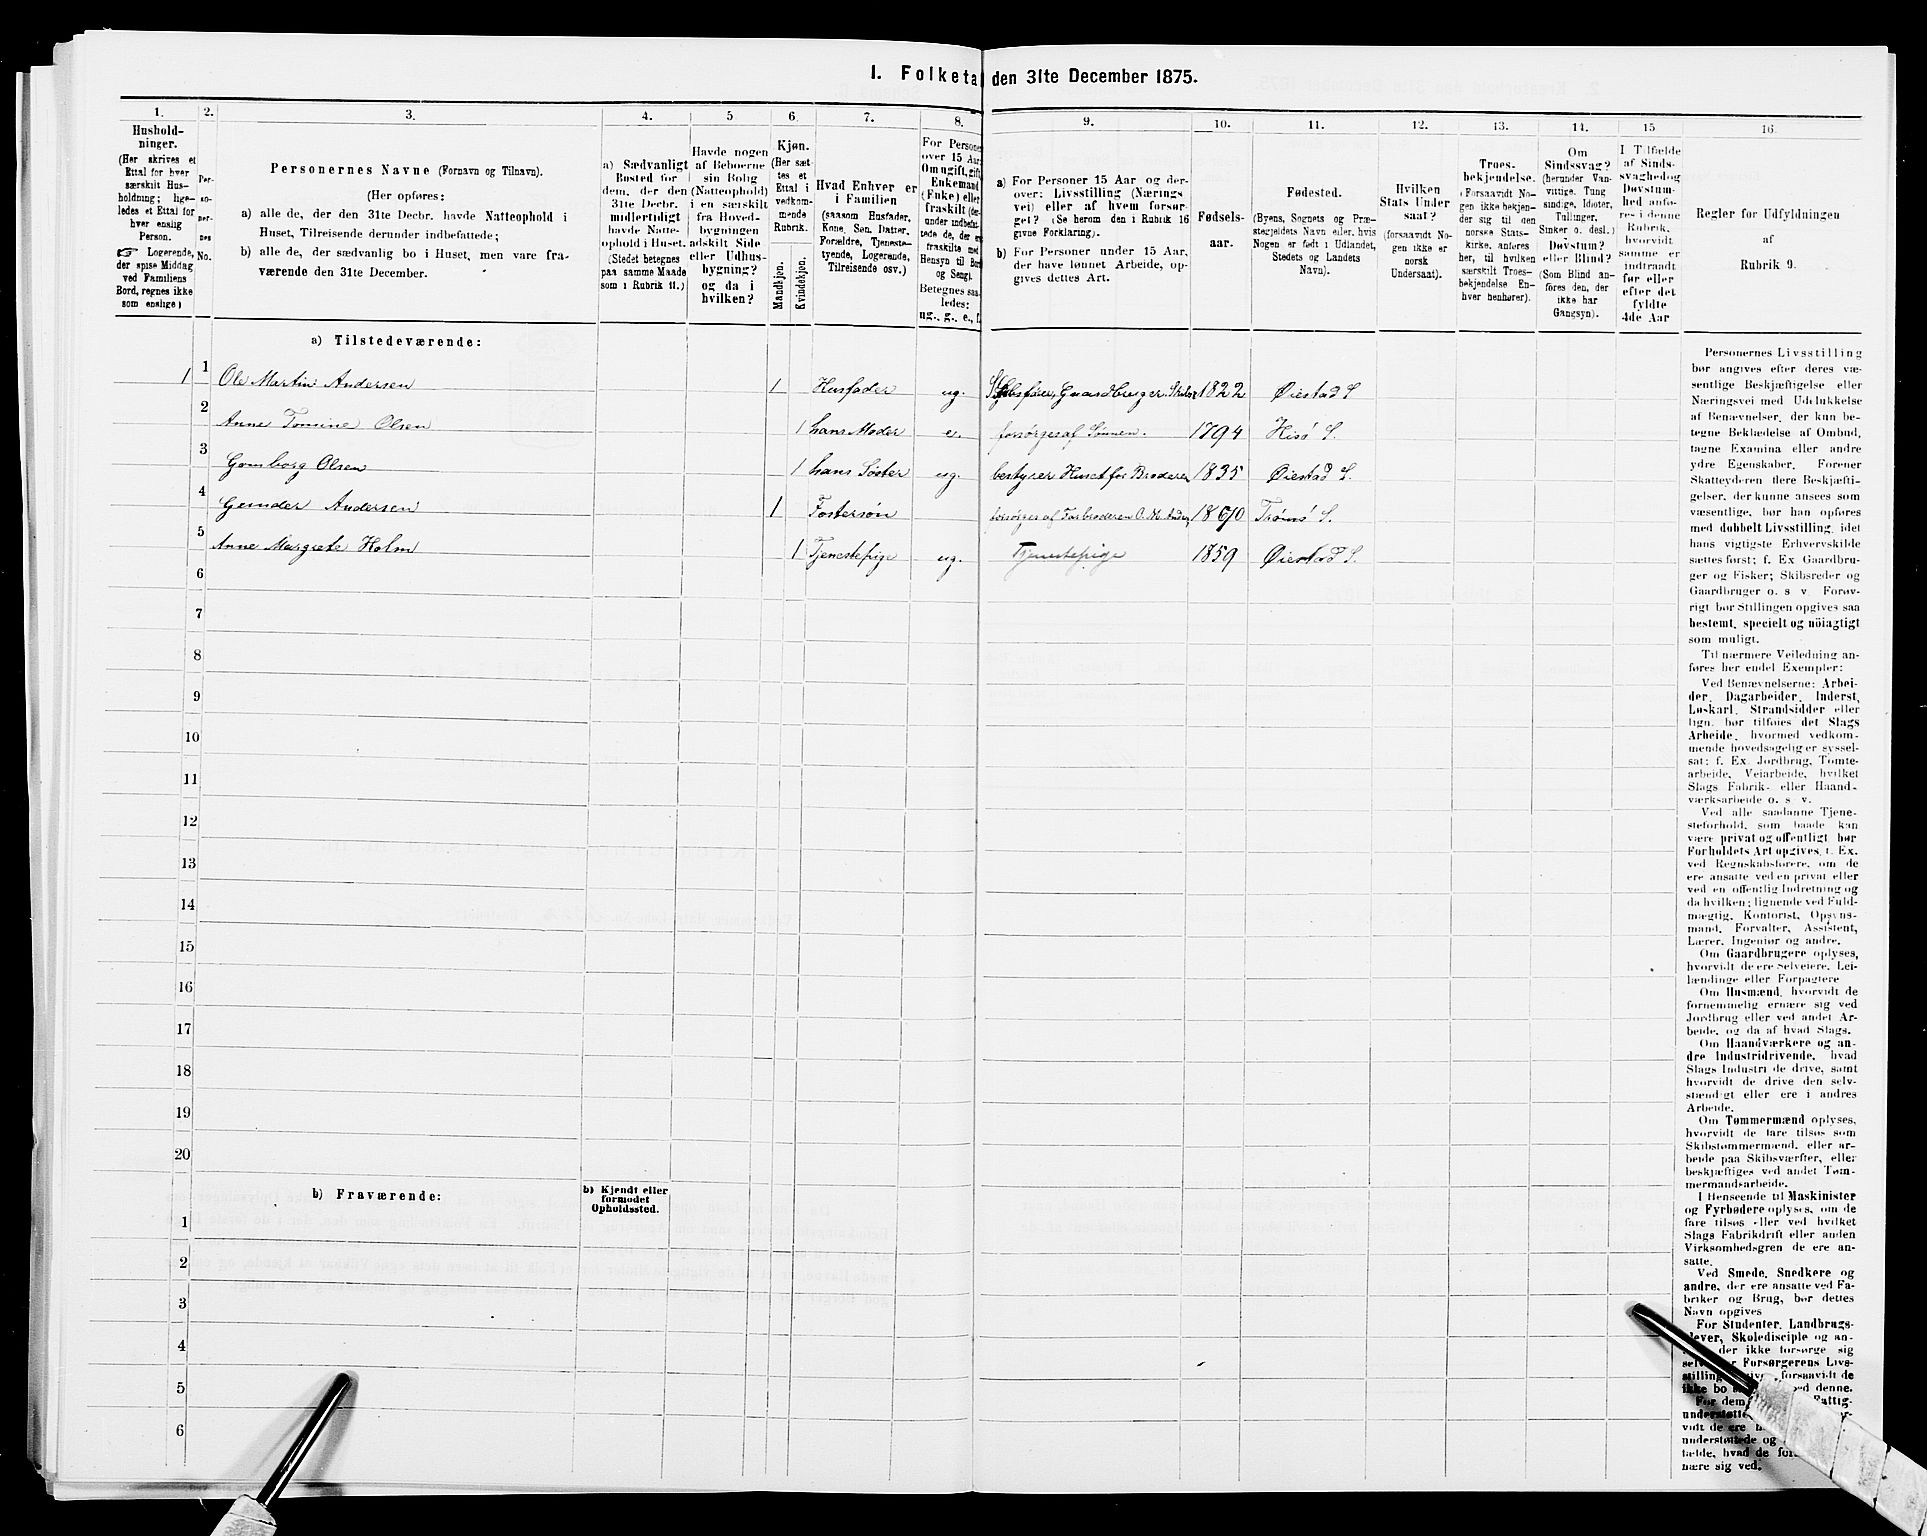 I. Folketal den 31te December 1875.
1. 2. 3. 4. 5 6. 7. 8. 9. 10. 11. 12. 13. 14. 15 16.
Hushold-
ninger.
(Her skrives et
Ettal for hver
særskilt Hus-
holdning; lige-
ledes et Ettal for
hver enslig
Person.
☞ Logerende,
der spise Middag
ved Familiens
Bord, regnes ikke
som enslige)
Per-
so-
ner-
nes
No.
Personernes Navne (Fornavn og Tilnavn).
(Her opføres:
a) alle de, der den 31te Decbr. havde Natteophold i
Huset, Tilreisende derunder indbefattede;
b) alle de, der sædvanlig bo i Huset, men vare fra-
værende den 31te December.
a) Sædvanligt
Bosted for
dem, der den
31te Decbr.
midlertidigt
havde Natte-
ophold i Huset.
(Stedet betegnes
paa samme Maade
som i Rubrik 11.)
Havde nogen
af Beboerne
sin Bolig
(Natteophold)
i en særskilt
fra Hoved-
bygningen
adskilt Side
eller Udhus-
bygning?
og da i
hvilken?
Kjøn.
(Her sæt-
tes et
Ettal i
vedkom-
mende
Rubrik.
Mandkjøn.
Kvindekjøn.
Hvad Enhver er
i Familien
(saasom Husfader,
Kone, Søn, Datter,
Forældre, Tjeneste-
tyende, Logerende,
Tilreisende osv.)
For Persone
over 15 Aar
Om ugift, gift,
Enkemand
(Enke) eller
fraskilt (der-
under indbefat-
tede de, der er
fraskilte med
Hensyn til Bord
og Seng).
Betegnes saa-
ledes:
ug., g., e., f.
a) For Personer 15 Aar og der-
over: Livsstilling (Nærings-
vei) eller af hvem forsør-
get? (Se herom den i Rubrik 16
givne Forklaring).
b) For Personer under 15 Aar,
der have lønnet Arbeide, op-
gives dettes Art.
Fødsels-
aar.
Fødested.
(Byens, Sognets og Præ-
stegjeldets Navn eller, hvis
Nogen er født i Udlandet,
Stedets og Landets
Navn).
Hvilken
Stats Under
saat?
(forsaavidt No-
gen ikke er
norsk
Undersaat).
Troes-
bekjendelse.
(Forsaavidt No-
gen ikke bekjen-
der sig til den
norske Stats-
kirke, anføres
her, til hvilken
særskilt Troes-
bekjendelse En-
hver henhører).
Om
Sindssvag?
(herunder Van-
vittige, Tung
sindige, Idioter,
Tullinger,
Sinker o. desl.)
Døvstum?
eller Blind?
(Som Blind an-
føres den, der
ikke har
Gangsyn).
I Tilfælde
af Sinds-
svaghed og
Døvstum-
hed anfø-
res i denne
Rubrik,
hvorvidt
samme er
indtraadt
før eller
efter det
fyldte
4de Aar
Regler for Udfyldningen
af
Rubrik 9.
a) Tilstedeværende:
1 1 Ole Martin Andersen 1 Husfader ug. Gaardbruger 1822 Øiestad S
2 Anne Tomine Olsen 1 hans Moder e. forsørges af Sønnen. 1794 Hisø S.
3 Gomborg Olsen 1 hans Søster ug. bestyrer Huset for Broderen 1835 Øiestad S.
4 Gunder Andersen 1 Fostersøn forsørges af Farbroderen O. M. Ander, Tromø S.
5 Anne Margrete Holm 1 Tjenestepige ug. Tjenestepige 1859 Øiestad S.
6
7
8
9
10
11
12
13
14
15
16
17
18
19
20
b) Fraværende:
b) Kjendt eller
formodet
Opholdssted.
1
2
3
4
5
6
Personernes Livsstilling
bør angives efter deres væ-
sentlige Beskjæftigelse eller
Næringsvei med Udelukkelse
af Benævnelser, der kun be-
tegne Beklædelse af Ombud,
tagne Examina eller andre
ydre Egenskaber. Forener
Skatteyderen flere Beskjæfti-
gelser, der kunne ansees som
væsentlige, bør han opføres
med dobbelt Livsstilling, idet
hans vigtigste Erhvervskilde
sættes først; f. Ex Gaardbru-
ger og Fisker; Skibsreder og
Gaardbruger o. s v. Forøv-
rigt bør Stillingen opgives saa
bestemt, specielt og nöiagtigt
som muligt.
Til nærmere Veiledning an-
føres her endel Exempler:
Ved Benævnelserne: Arbei-
der, Dagarbeider, Inderst,
Løskarl, Strandsidder eller
lign. bør tilføies det Slags
Arbeide, hvormed vedkom-
mende hovedsagelig er syssel-
sat; f. Ex. Jordbrug, Tomte-
arbeide, Veiarbeide, hvilket
Slags Fabrik- eller Haand-
værksarbeide o. s. v.
Ved alle saadanne Tjene-
steforhold, som baade kan
være privat og offentligt bør
Forholdets Art opgives, f. Ex.
ved Regnskabsførere, om de
ere ansatte ved en privat eller
ved en offentlig Indretning og
da hvilken; lignende ved Fuld-
mægtig, Kontorist, Opsyns-
mand, Forvalter, Assistent,
Lærer, Ingeniør og andre.
Om Gaardbrugere oplyses,
hvorvidt de ere Selveiere, Lei-
lændinge eller Forpagtere
Om Husmænd, hvorvidt de
fornemmelig ernære sig ved
Jordbrug eller ved andet Ar-
beide, og da af hvad Slags.
Om Haandværkere og an-
dre Industridrivende, hvad
Slags Industri de drive, samt
hvorvidt de drive den selv-
stændigt eller ere i andres
Arbeide.
Om Tømmermænd oplyses,
hvorvidt de fare tilsøs som
Skibstømmermænd, eller ar-
beide paa Skibsværfter, eller
beskjæftiges ved andet Tøm-
mermandsarbeide.
I Henseende til Maskinister
og Fyrbødere oplyses, om de
fare tilsøs eller ved hvilket
Slags Fabrikdrift eller anden
Virksomhedsgren de ere an-
satte.
Ved Smede, Snedkere og
andre, der ere ansatte ved Fa-
briker og Brug, bør dettes
Navn opgives
For Studenter, Landbrugs-
elever, Skoledisciple og an-
der ikke forsørge sig
Forsørgerens Livs-
stilling forsaavidt de
ikke bo med denne.
For dem Fattig-
understøtte
vidt de ere
understøttede og
fælde, hvad de
nære sig ved.